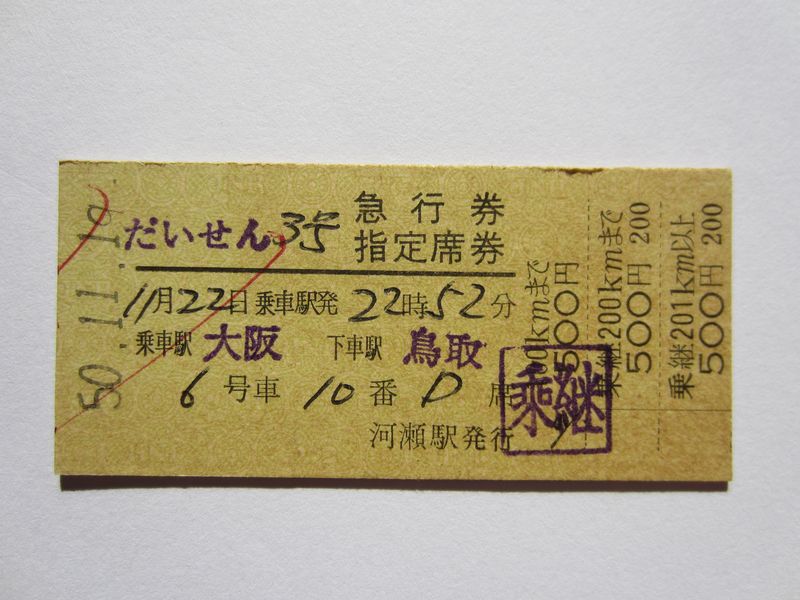 50.11.19
だいせん3号
急行券
指定席券
11月22日 乗車駅発 22時52分
乗車駅 大阪 下車駅 鳥取
6号車 10番 D席
河瀬駅発行
乗継
0kmまで
500円
乗継200kmまで
500円 200
乗継201km以上
500円 200